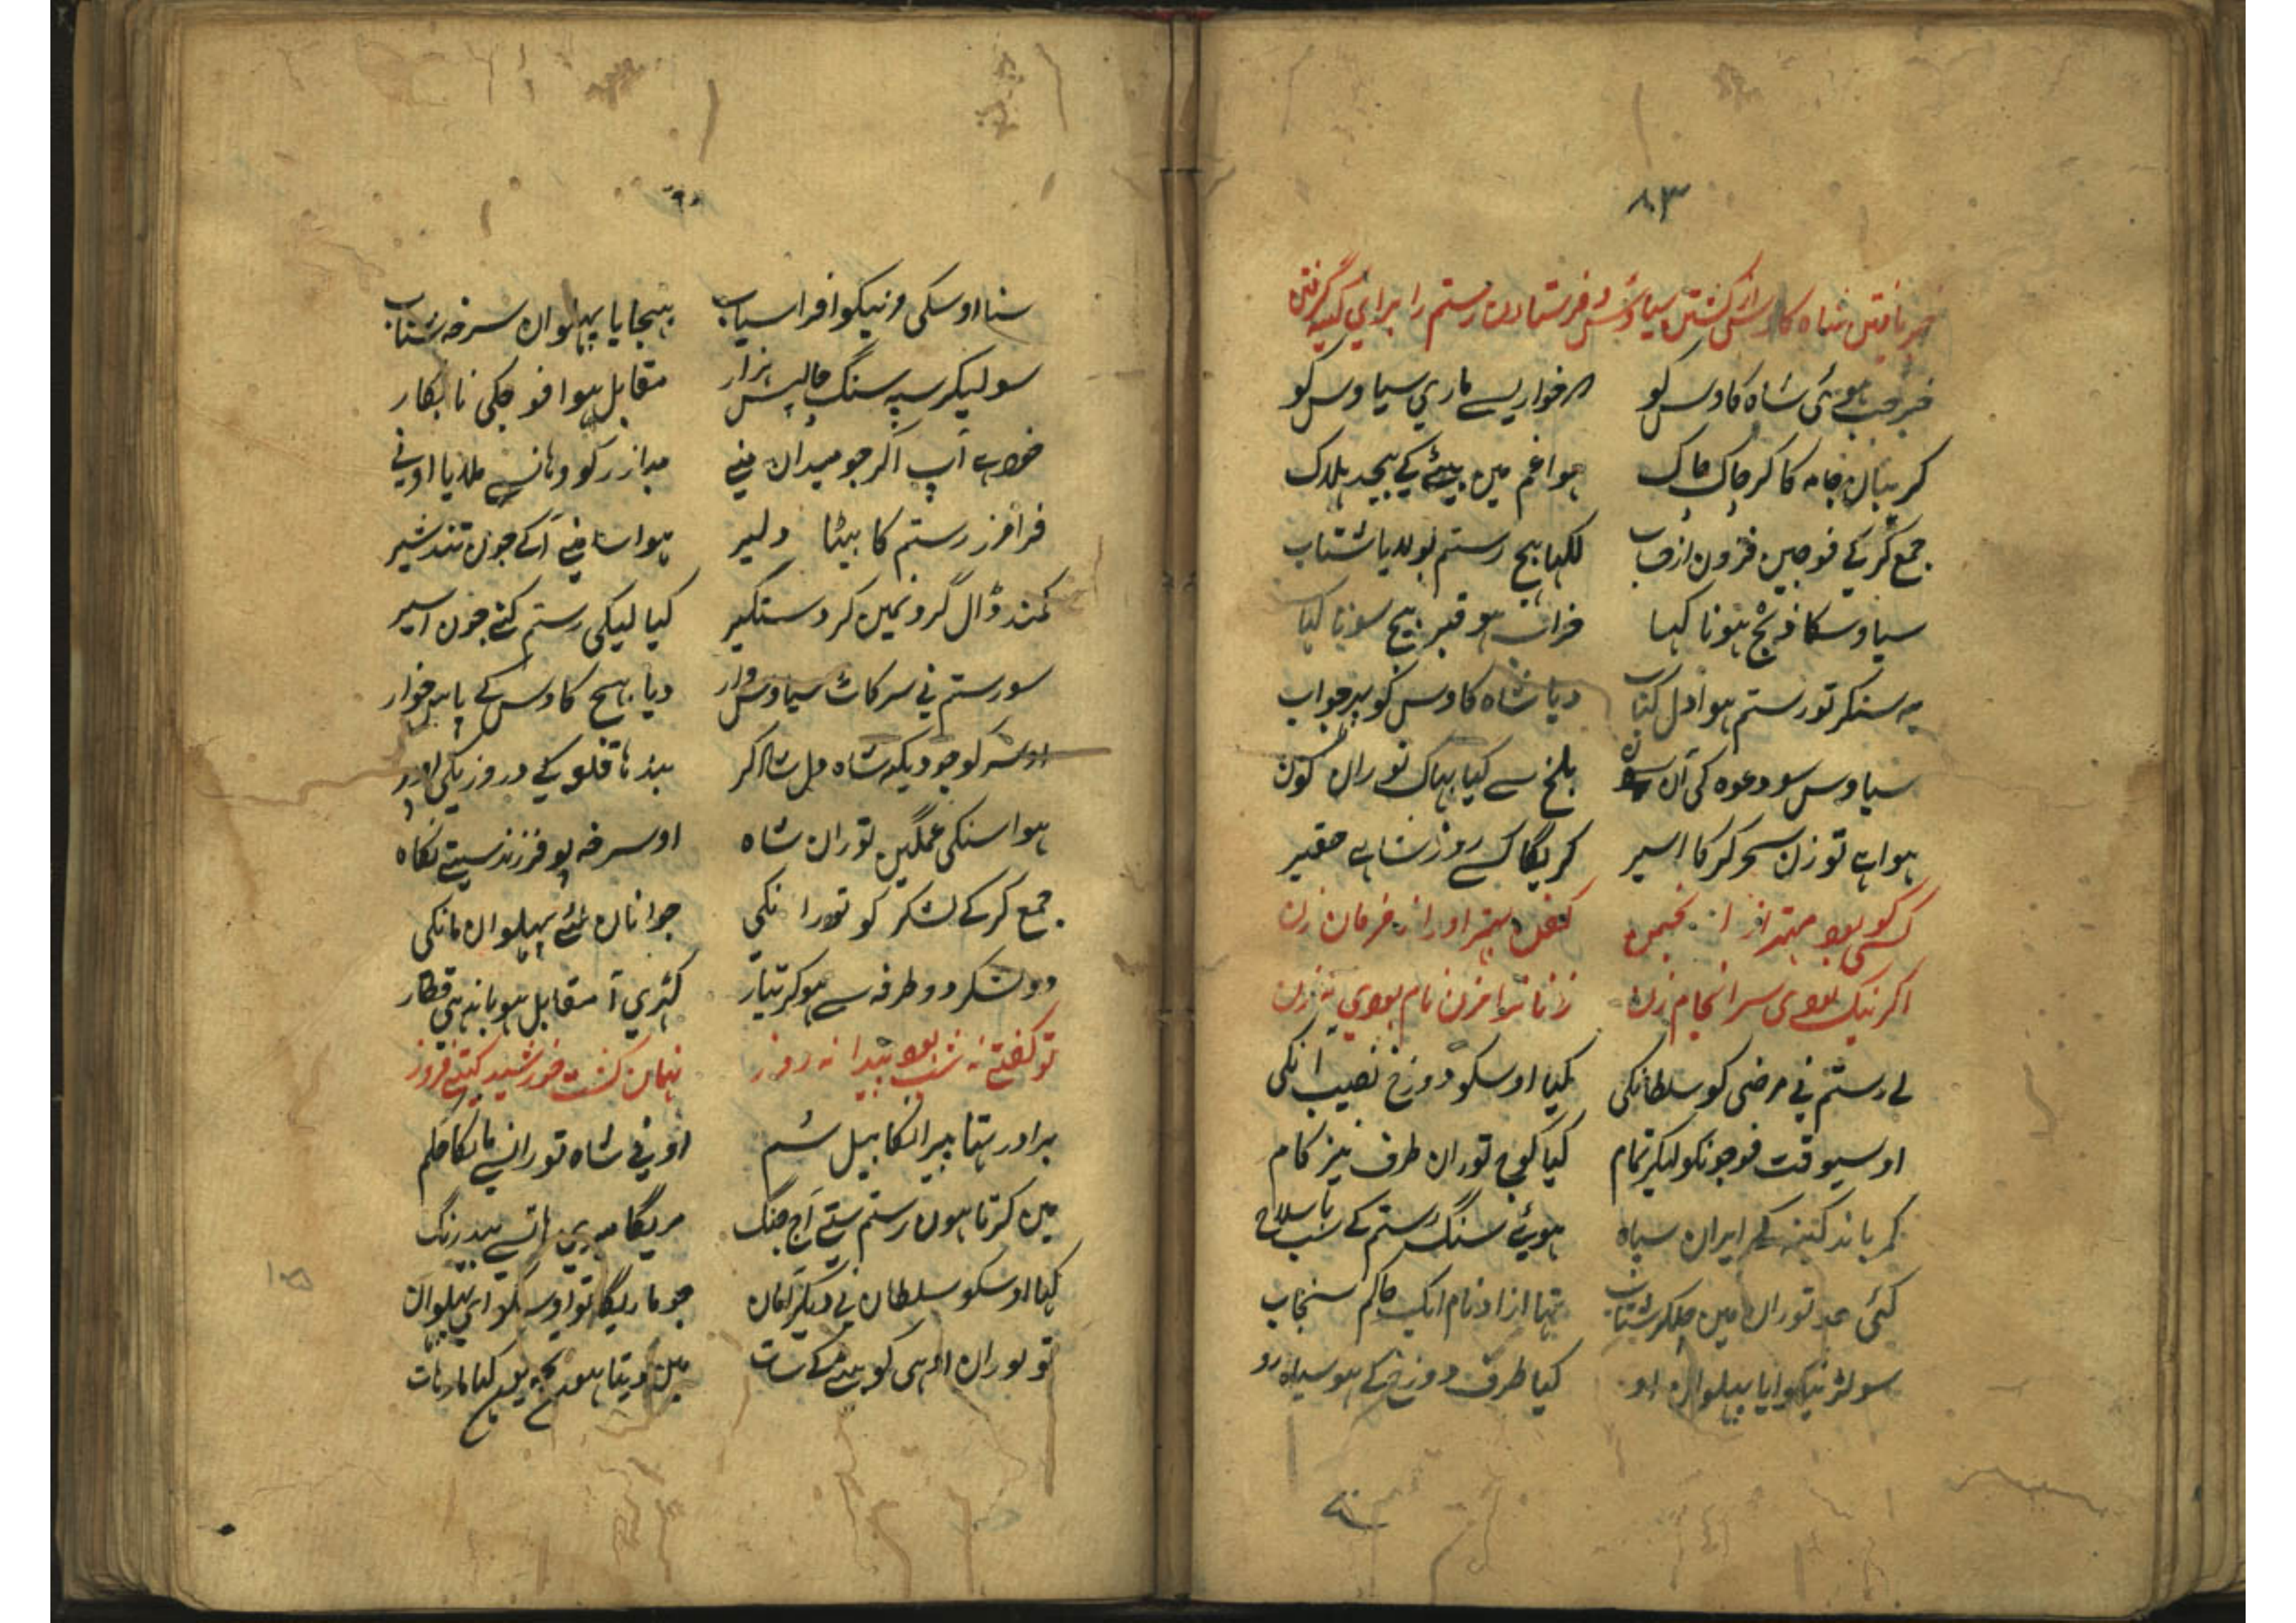 ۸۳
خبر یافتن شاه کاوس از کشتن سیاوش و فرستادن رستم را برای کینه گرفتن
خبر جب هوئی شاه کاوس کو خواریسے ماری سیاوس کو
کریبان جامہ کا کر چاک چاک هوا غم مین بیٹے کے بیحد هلاک
جمع کر کے فوجین فزون از حساب لکھا بیج رستم بولایا شتاب
سیاوسکا ذبح هونا کہا هو قبر بیج سونا کیا
یہ سنکر تو رستم هوا دل کباب دیا شاه کاوس کو پہر جواب
سیاوس سو دعوه کی آن سون بلخ سے کیا بہاک توران کون
هوا ہے تو زن سحر کر کا اسیر کریگا کسے روز حقیر
کسی کو بود مهتر از انجمن کفن بهتر او را ز فرمان زن
اگر نیک بودی سرانجام زن زنانرا مزن نام بودی نہ زن
لے رستم نے مرضی کو سلطانکی کیا اوسکو دوزخ نصیب آنکی
اوسیوقت فوجونکو لیکر تمام کیا کوچ توران طرف تیز کام
کمر باند کینہ کے ایران سپاه هوئے سنگ رستم کے سب با سلاح
کئی حد توران مین چلکر شتاب تہا ازاد نام ایک حاکم سنجاب
سو لڑنیکو آیا پہلوان او کیا طرف دوزخ کے هو سیاه رو
سنا اوسکی مرنیکو افراسیاب بهیجایا پہلوان سرخہ شتاب
سو لیکر سپہ سنگ چالیس هزار مقابل هوا فوجکی نابکار
آپ اکر جو میدان منے کو وهانسے ملادیا اونے
فرامرز رستم کا بیٹا دلیر هوا سامنے آکے جون تند شیر
کمند ڈال گردنمین کر دستگیر کیا لیکی رستم کنے جون اسیر
سو رستم نے سر کاٹ سیاوس وار دیا بہیج کاوس کے پاس خوار
اوسر کو جو دیکہ شاه دل شاد کر بندها قلعہ کے دروزیکی اوپر
هوا سنکی غمگین توران شاه او سرخہ پو فرزند سیتے نکاه
جمع کر کے لشکر کو تورانکی جوانان لئے پہلوان مانکی
دو لشکر دو طرفہ سے هو کر تیار کہڑی آ مقابل هو باندهی قطار
تو گفتے نہ شب بود پیدا نہ روز نہان گشت خورشید گیتی فروز
برادر تہا پیرانکا پیل سم اونے شاه تورانسے مانکا حکم
مین کرتا هون رستم ستے آج جنگ مریگا میری هاتسے بیدرنگ
کہا اوسکو سلطان نے دیکر امان جو ماریگا تو اوسکو اے پہلوان
تو توران ادهی کو بیٹے کے سات مین دیتا هون تجہ کو
۱۰۵